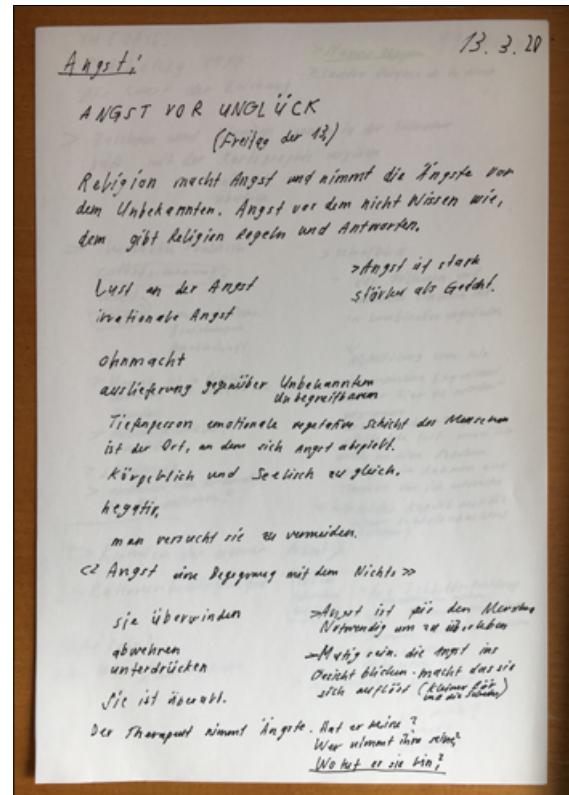 13. 3. 20
Angst:
ANGST VOR UNGLÜCK
(Freitag der 13.)
Religion macht Angst und nimmt die Ängste vor
dem Unbekannten. Angst vor dem nicht Wissen wie,
dem gibt Religion Regeln und Antworten.
Lust an der Angst
irrationale Angst
>Angst ist stark
stärker als Gedcht.
ohnmacht
auslieferung gegenüber Unbekanntem
Unbegreifbarem
Tiefenperson emotionale vegetative Schicht des Menschen
ist der Ort, an dem sich Angst abspielt.
Körperlich und Seelisch zu gleich.
negativ,
man versucht sie zu vermeiden.
<< Angst eine Begegnung mit dem Nichts >>
sie überwinden
abwehren
unterdrücken
Sie ist überall.
>Angst ist für den Menschen
Notwendig um zu überleben
>Mutig sein. die Angst ins
Gesicht blicken - macht das sie
sich auflöst (kleiner Bär
)
Der Therapeut nimmt Ängste. Hat er keine?
Wer nimmt ihm seine?
Wo tut er sie hin?